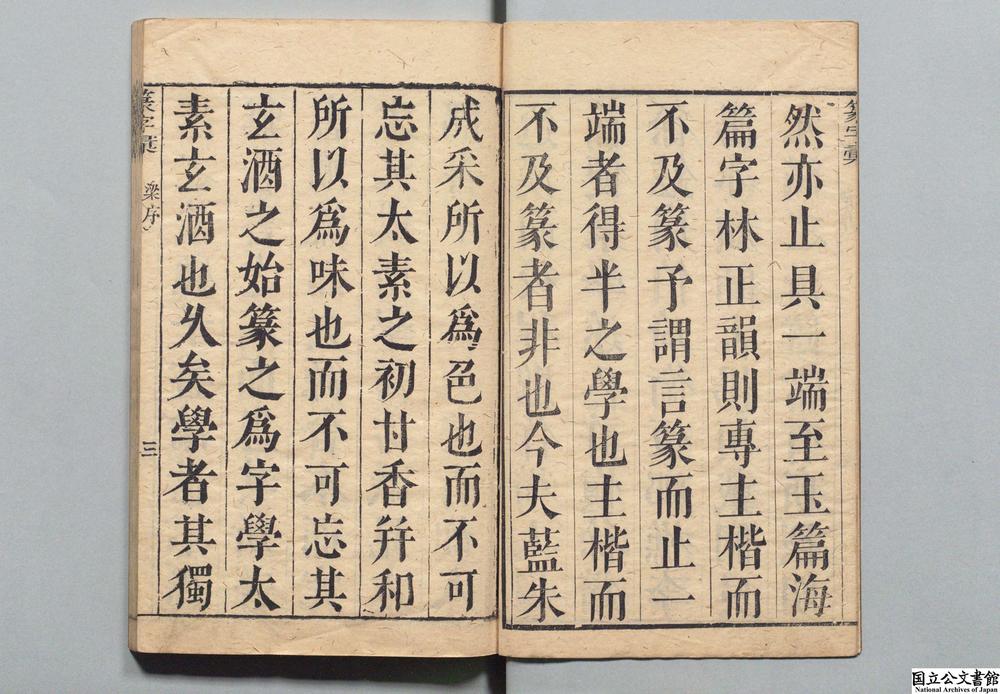 篆字彙
然亦止具一端至玉篇海
篇字林正韻則專主楷而
不及篆予謂言篆而止一
端者得半之學也主楷而
不及篆者非也今夫藍朱
成采所以爲色也而不可
忘其太素之初甘香幷和
所以爲味也而不可忘其
玄酒之始篆之爲字學太
素玄酒也久矣學者其獨
篆字彙 梁序 三
国立公文書館
National Archives of Japan